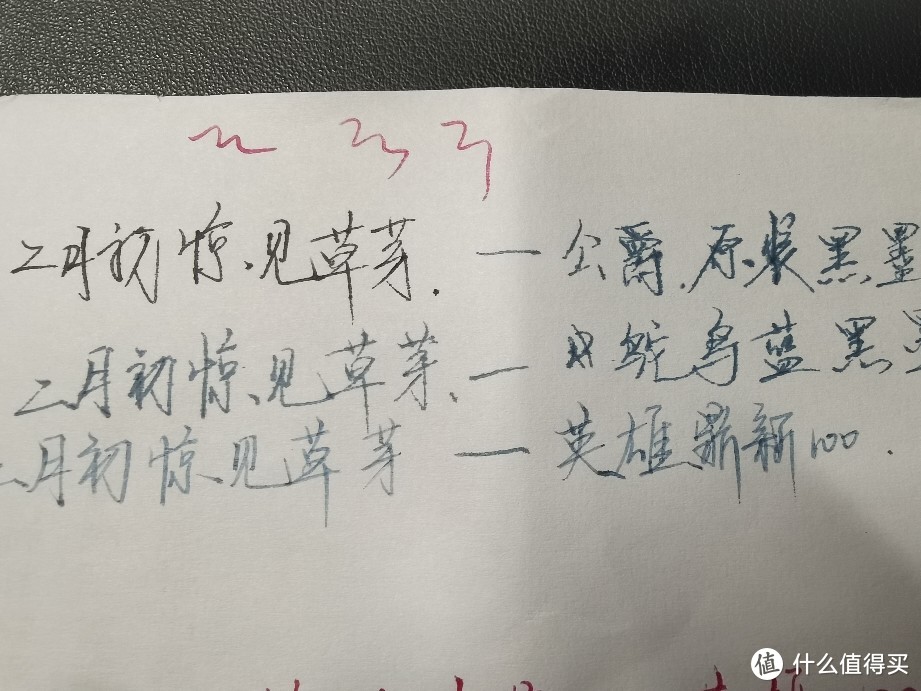 二月初惊见草芽.一公爵.原装黑墨
二月初惊见草芽.一鸵鸟蓝黑墨
二月初惊见草芽一英雄鼎新100.
值 什么值得买